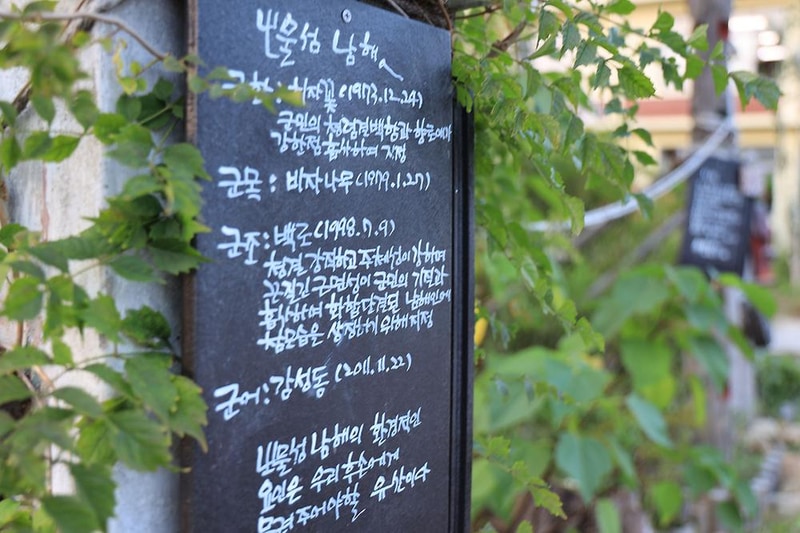 보물섬 남해
군화 : 치자꽃 (1973.12.24)
군민의 청렴결백함과 향토애가
강한점 흡사하여 지정
군목 : 비자나무 (1979.1.27)
군조 : 백로 (1998.7.9)
청결 강직하고 주체성이 강하며
끈질긴 근면성이 군민의 기질과
흡사하며 화합단결된 남해인에
참모습을 상징하기 위해 지정
군어 : 감성돔 (2011.11.22)
보물섬 남해의 환경적인
요인은 우리 후손에게
물려주어야할 유산이다